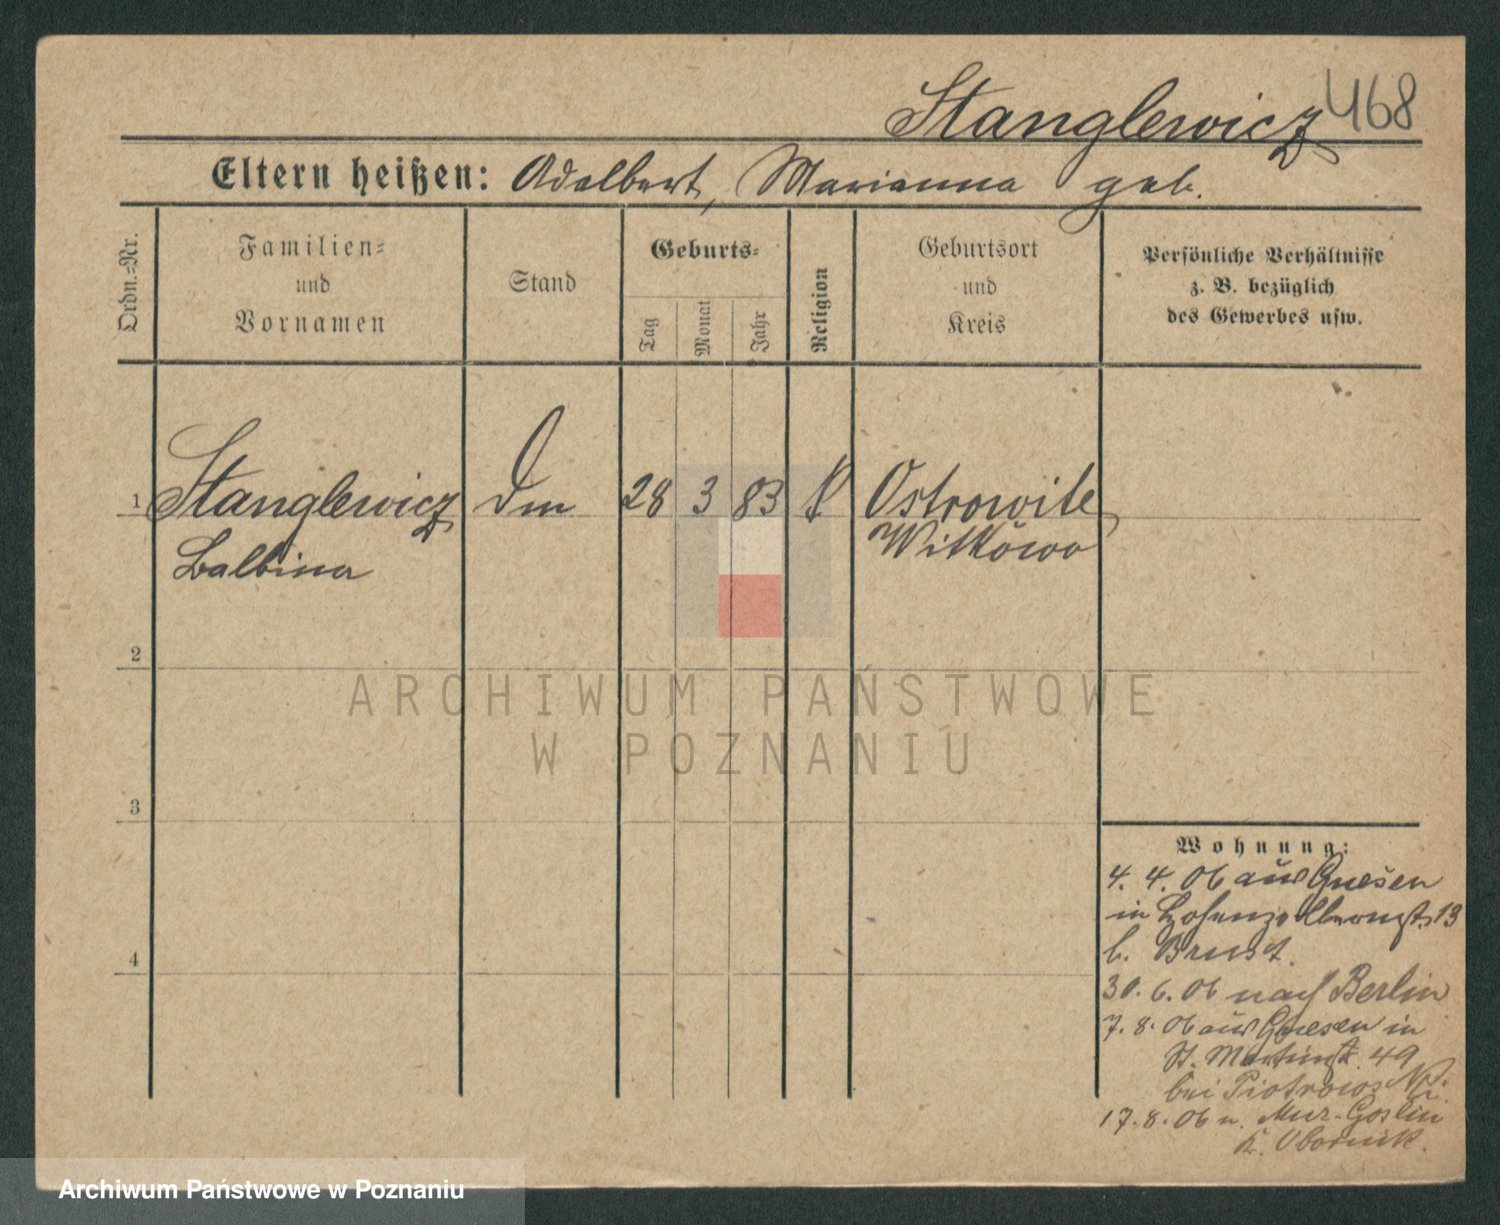 Stanglewicz 468
Eltern heißen: Adalbert, Marianna geb.
Ordn.-Nr.
Familien-
und
Vornamen
Stand
Geburts-
Tag
Monat
Jahr
Religion
Geburtsort
und
Kreis
Persönliche Verhältnisse
z. B. bezüglich
des Gewerbes usw.
1 Stanglewicz 28 3 83 Ostrowite
Balbina Witkowo
2
ARCHIWUM PAŃSTWOWE
W POZNANIU
3
Wohnung:
4. 4. 06 aus Gnesen
in Hohenzollernstr. 13
b. Brust.
4
30. 6. 06 nach Berlin
7. 8. 06 aus Gnesen in
St. Martinstr. 49
bei
17. 8. 06 n. Mur-Goslin
K. Obornik.
Archiwum Państwowe w Poznaniu